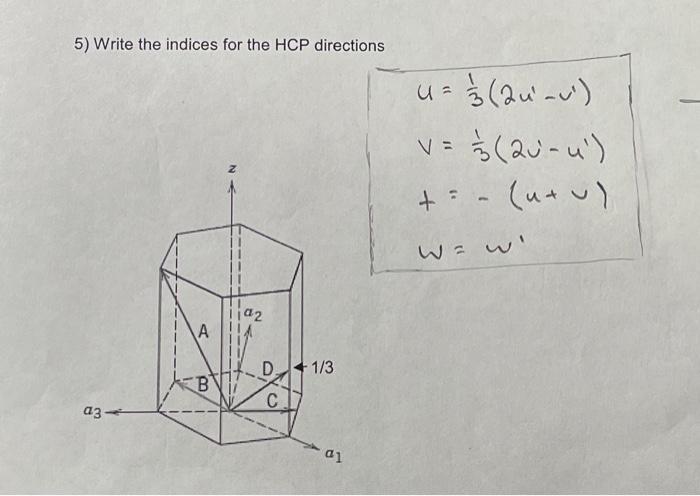 5) Write the indices for the HCP directions
u = 1/3 (2u' - v')
v = 1/3 (2v' - u')
t = - (u + v)
w = w'
z
a2
A
D
1/3
B
C
a3
a1